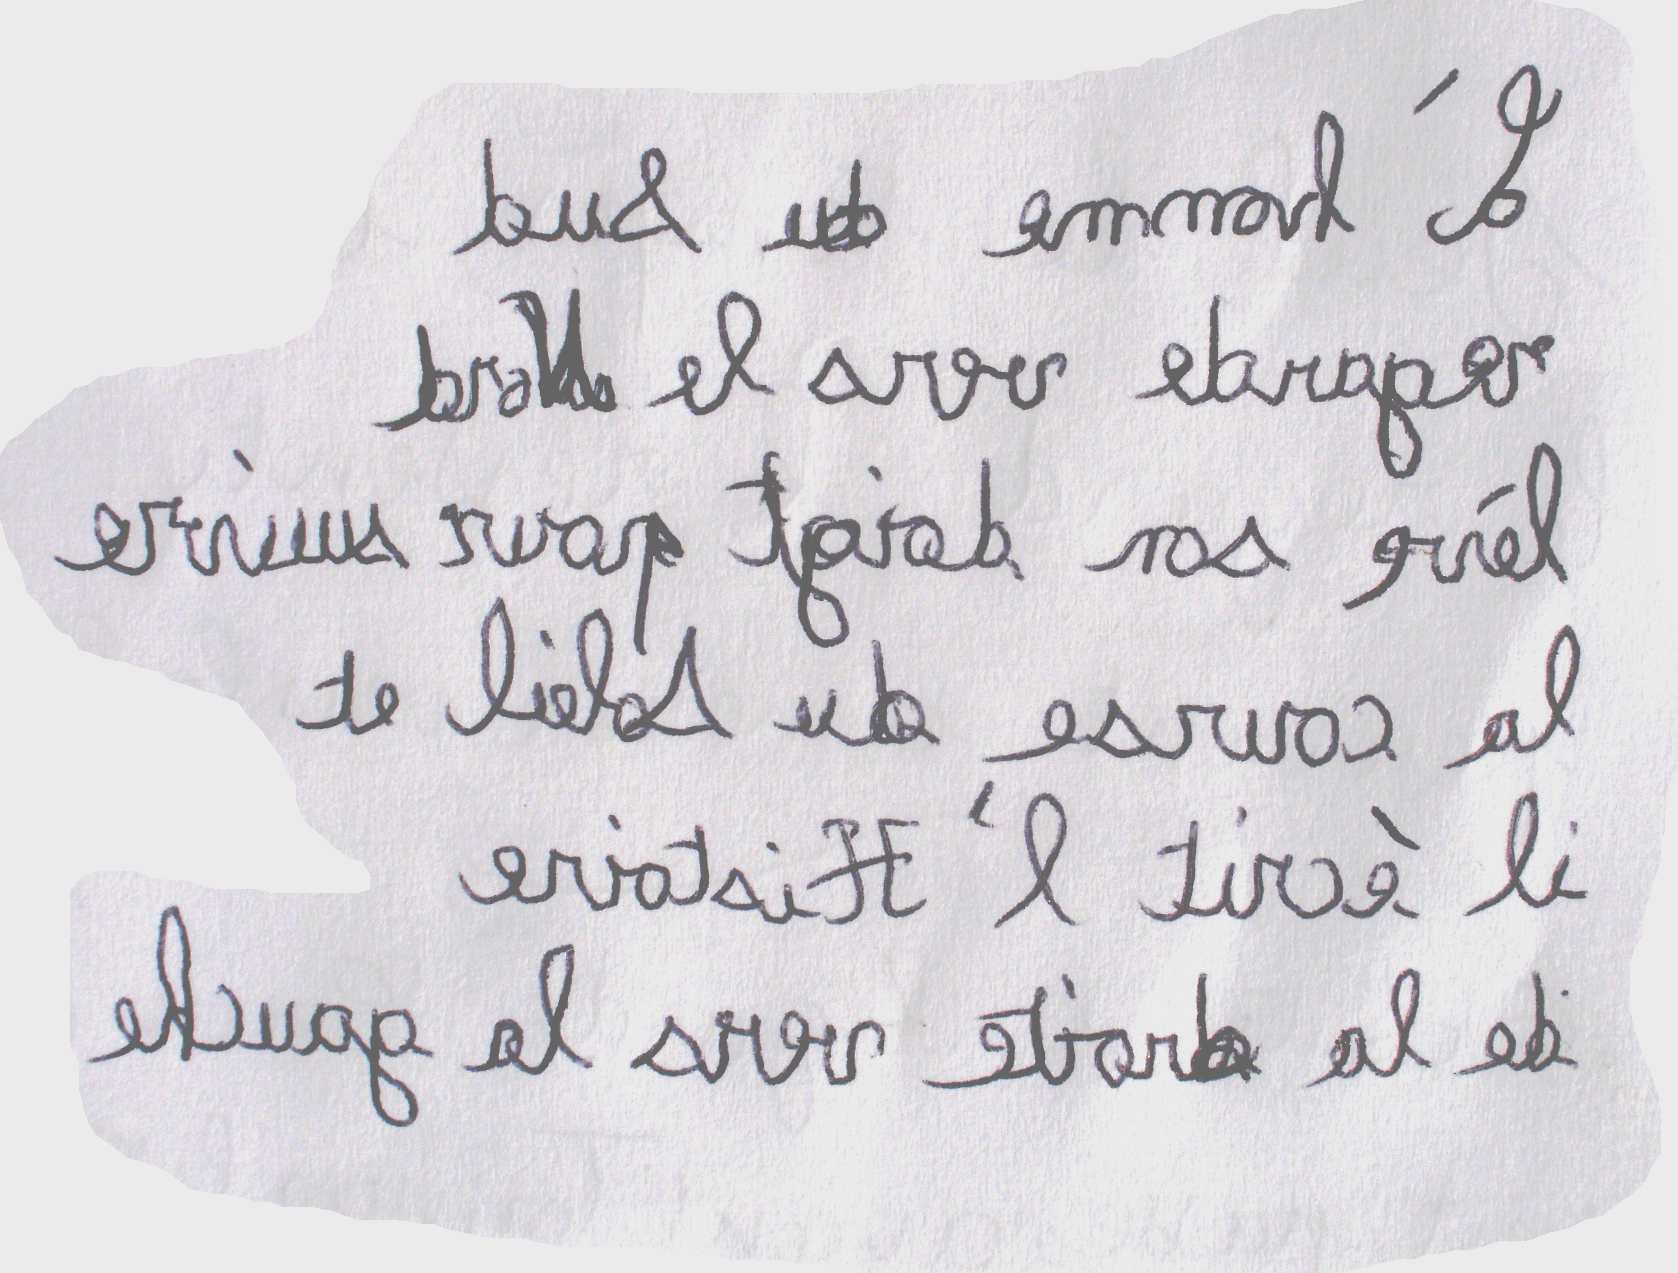 L'homme du Sud
regarde vers le Nord
lève son doigt pour suivre
la course du Soleil et
il écrit l'Histoire
de la droite vers la gauche